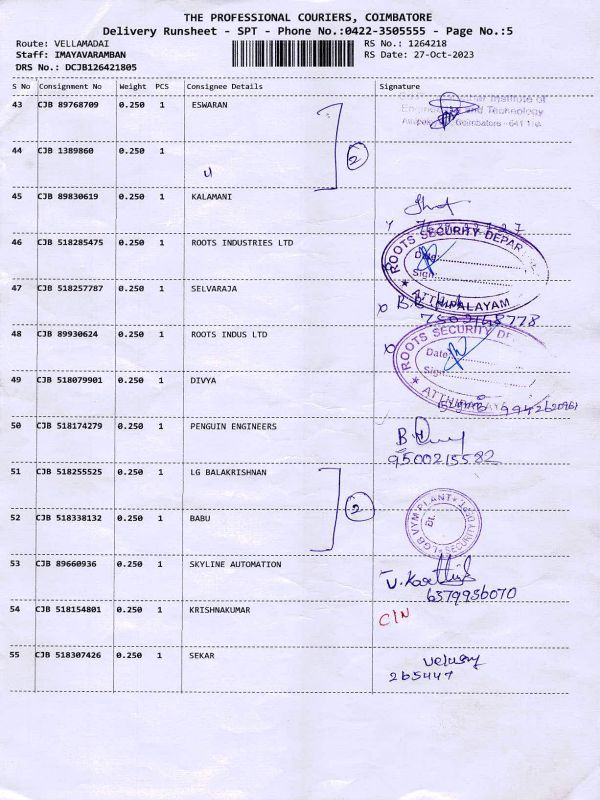 THE PROFESSIONAL COURIERS, COIMBATORE
Delivery Runsheet - SPT - Phone No.:0422-3505555 - Page No.:5
Route: VELLAMADAI
RS No.: 1264218
Staff: IMAYAVARAMBAN
RS Date: 27-Oct-2023
DRS No.: DCJB126421805
S No Consignment No Weight PCS Consignee Details Signature
43 CJB 89768709 0.250 1 ESWARAN
Institute of
and Technology
Coimbatore - 641
2
44 CJB 1389860 0.250 1
45 CJB 89830619 0.250 1 KALAMANI
46 CJB 518285475 0.250 1 ROOTS INDUSTRIES LTD
ROOTS SECURITY DEPAR
Date:
Sign:
ATTHIPALAYAM
47 CJB 518257787 0.250 1 SELVARAJA
48 CJB 89930624 0.250 1 ROOTS INDUS LTD
ROOTS SECURITY DE
Date:
Sign:
49 CJB 518079901 0.250 1 DIVYA
50 CJB 518174279 0.250 1 PENGUIN ENGINEERS
9500215582
51 CJB 518255525 1 0.250 1 LG BALAKRISHNAN
2
LGB VYM PLANT
SECURITY
52 CJB 518338132 0.250 1 BABU
53 CJB 89660936 0.250 1 SKYLINE AUTOMATION
6379936070
54 CJB 518154801 0.250 1 KRISHNAKUMAR
C/N
55 CJB 518307426 0.250 1 SEKAR
265447